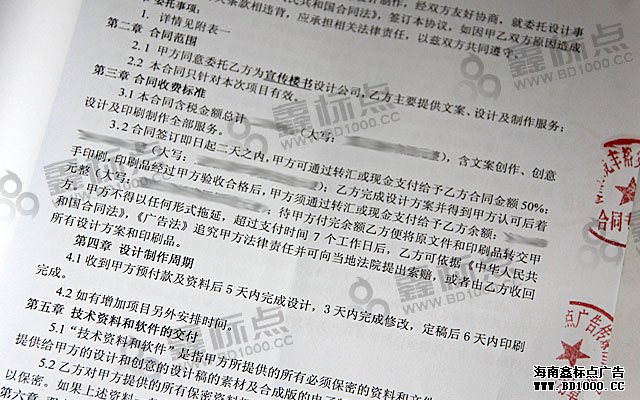 制作，经双方友好协商，就委托设计事
委托事项：
条款相违背，应承担相关法律责任，以兹双方共同遵守
民共和国合同法》，签订本协议，如因甲乙双方原因造成
1. 详情见附表一
第二章 合同范围
2.1 甲方同意委托乙方为宣传楼书设计公司，乙方主要提供文案、设计及制作服务；
2.2 本合同只针对本次项目有效。
第三章 合同收费标准
3.1 本合同含税金额总计（大写：），含文案创作、创意
设计及印刷制作全部服务。
3.2 合同签订即日起二天之内，甲方可通过转汇或现金支付给予乙方合同金额 50%：
（大写：）；乙方完成设计方案并得到甲方认可后着
手印刷，印刷品经过甲方验收合格后，甲方须通过转汇或现金支付给予乙方余额：
元整（大写：）；待甲方付完余额乙方便将原文件和印刷品转交甲
方。甲方不得以任何形式拖延，超过支付时间 7 个工作日后，乙方可依据《中华人民共
和国合同法》，《广告法》追究甲方法律责任并可向当地法院提出索赔，或者由乙方收回
所有设计方案和印刷品。
第四章 设计制作周期
4.1 收到甲方预付款及资料后 5 天内完成设计，3 天内完成修改，定稿后 6 天内印刷
完成。
4.2 如有增加项目另外安排时间。
第五章 技术资料和软件的交付
5.1 “技术资料和软件”是指甲方所提供的所有必须保密的资料和文件
提供给甲方的设计和创意的设计稿的素材及合成版的电子
5.2 乙方对甲方提供的所有保密资料
以保密。如果上述资料
第六章
合同专
点广告传
鑫标点
WWW.BD1000.CC
鑫标点
WWW.BD1000.CC
鑫标点
WWW.BD1000.CC
鑫标点
WWW.BD1000.CC
海南鑫标点广告
WWW.BD1000.CC